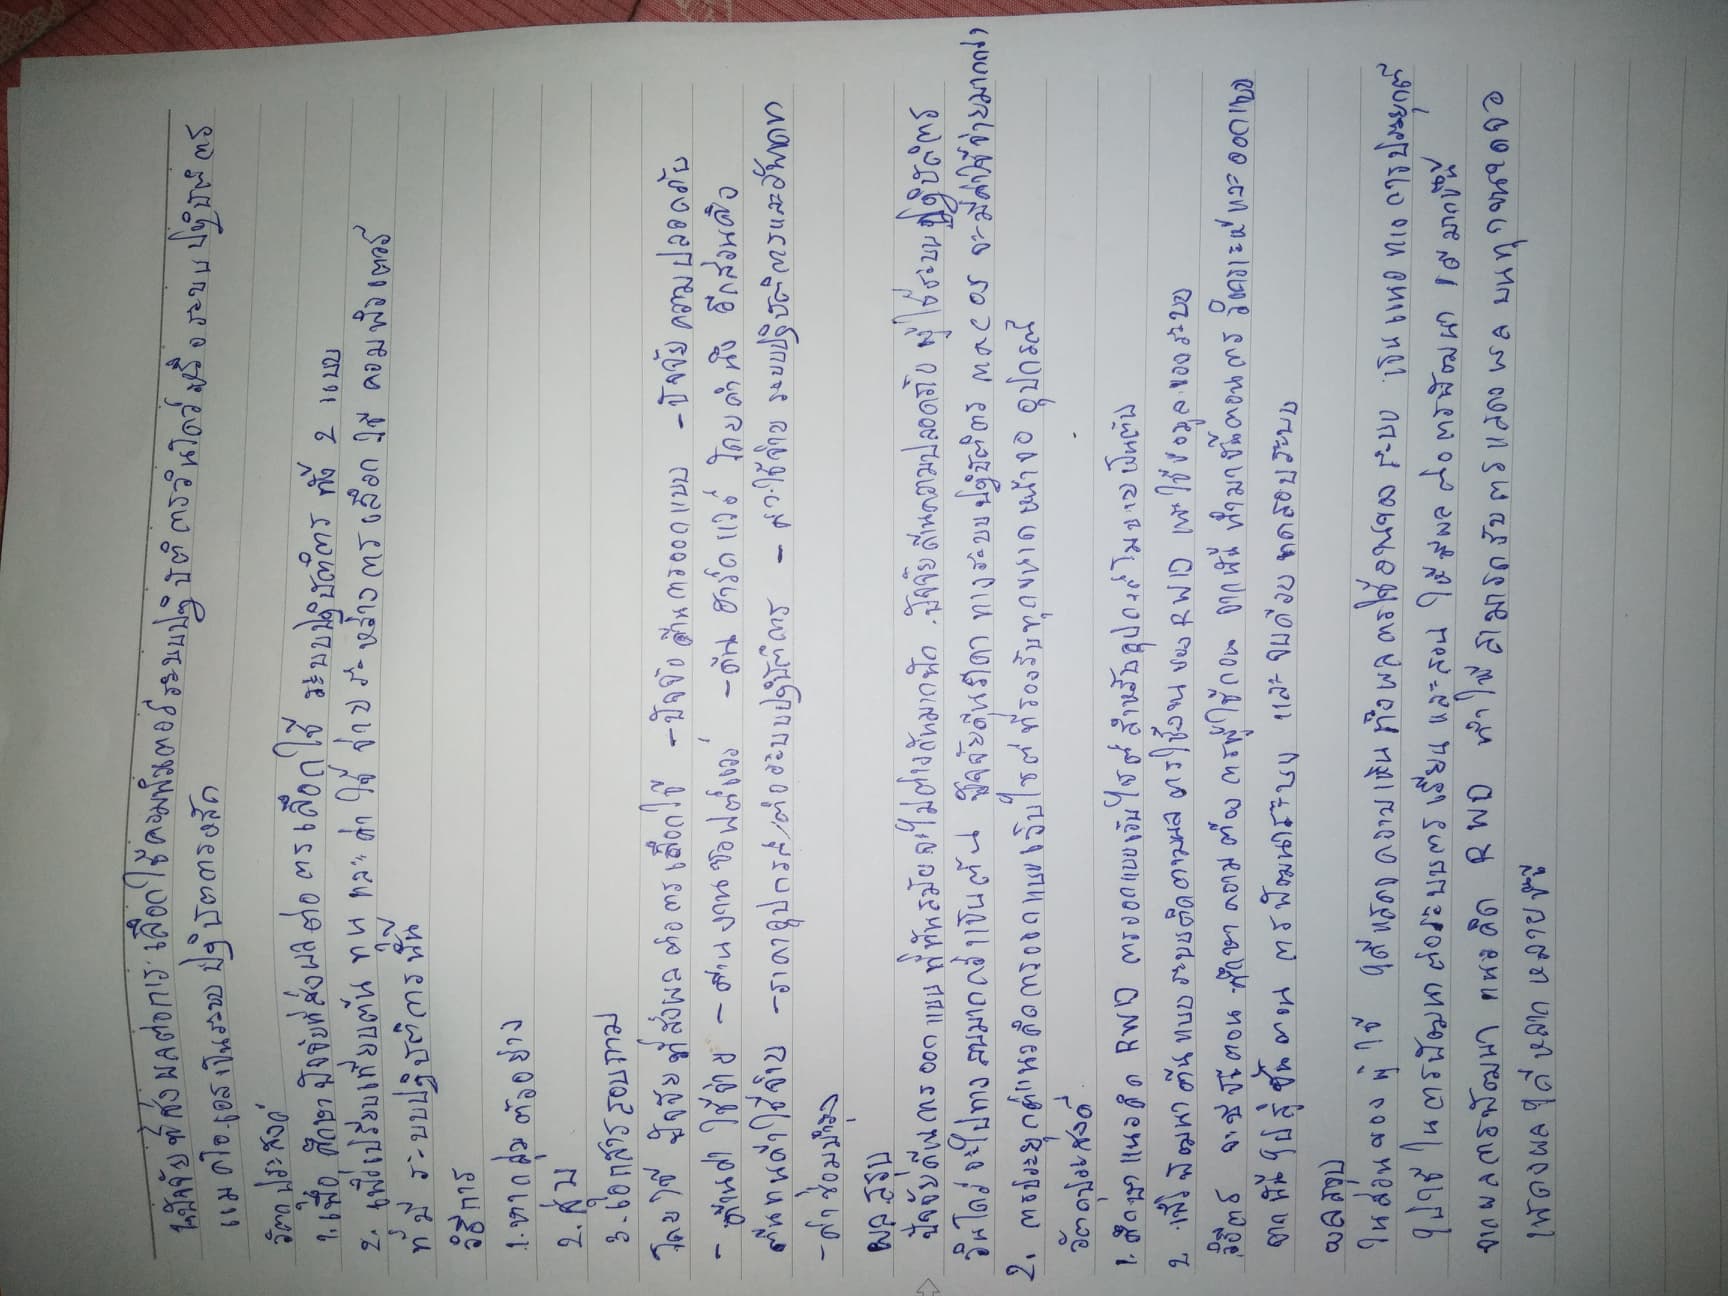 1.ปัจจัยที่ส่งผลต่อการเลือกใช้คอมพิวเตอร์ระบบปฏิบัติการวินโดว์หรือระบบปฏิบัติการ
แมคโอเอสเป็นระบบปฏิบัติการหลัก
วัตถุประสงค์
1.เพื่อศึกษาปัจจัยที่ส่งผลต่อการเลือกใช้ ระบบปฏิบัติการ ทั้ง 2 แบบ
2. เพื่อเปรียบเทียบต้นทุนและค่าใช้จ่ายระหว่างการเลือกใช้ คอมพิวเตอร์
ที่มี ระบบปฏิบัติการนี้
วิธีการ
1.หากลุ่มตัวอย่าง
2. สุ่ม
3. เอกสารสอบถาม
โดยใช้ ปัจจัยที่ส่งผลต่อการเลือกใช้ - ปัจจัยด้านการออกแบบ - ปัจจัยความปลอดภัย
- ด้านค่าใช้จ่าย - ด้านงานซอฟต์แวร์ - ด้าน ฮาร์ดแวร์ โดยคำนึง อีกส่วนคือ
ต้นทุนค่าใช้จ่าย - ราคาอุปกรณ์/ต่อระบบปฏิบัติการ - ค่าใช้จ่าย ระบบปฏิบัติการและอัพเดท
- ค่าซ่อมบำรุง
ผลสรุป
ปัจจัยด้านการออกแบบที่ทันสมัยจะไม่ต่างกันมากนัก ปัจจัยด้านความปลอดภัย ผู้ใช้ระบบปฏิบัติการ
วินโดว์จะไปทาง มากกว่าเป็นต้น ปัจจัยด้านราคา ทางระบบปฏิบัติการ macos จะมีค่าใช้จ่ายมากกว่า
2. การประยุกต์แนวคิดการออกแบบเว็บไซต์ที่รองรับทุกขนาดหน้าจอ อุปกรณ์
วัตถุประสงค์
1. ศึกษาแนวคิด RWD การออกแบบเว็บไซต์สำหรับอุปกรณ์ เป็นต้น
2. เพื่อพัฒนาต้นแบบระบบติดตามผลการใช้งานของ RWD และใช้ข้อมูลของระบบ
วิธีการ จะมีขั้นตอน ศึกษาความต้องการผู้ใช้ก่อน จากนั้น ทำมาขั้นตอนการ วิเคราะห์และออกแบบ
จากนั้นไปสู่ขั้นตอน การพัฒนาระบบ และจบด้วยทดสอบระบบ
ผลสรุป
ในส่วนของผู้ใช้ ได้แสดงความเห็นถึงผลการใช้งานของระบบ เป็นแนวทางการประยุกต์
ไปใช้ในการพัฒนาต่อระบบการเรียนและสอน ให้มีผลต่อการพัฒนา ได้มากขึ้น
จากผลการพัฒนา แนวคิด RWD ทำให้สามารถรับการแสดงผลบนทุกขนาดจอ
แสดงผลได้หลากหลายขึ้น